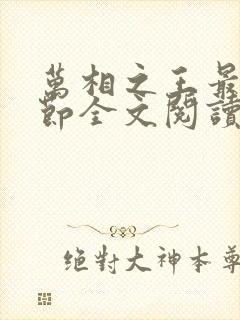 萬相之王最
節全文閱讀
絕對大神本尊